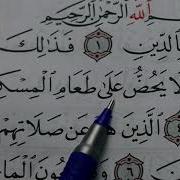 اللَّهِ الرَّحْمَٰنِ الرَّحِيمِ
بِالدِّينِ ١ فَذَٰلِكَ
لَا يَحُضُّ عَلَىٰ طَعَامِ الْمِسْكِ
الَّذِينَ هُمْ عَن صَلَاتِهِمْ
٦